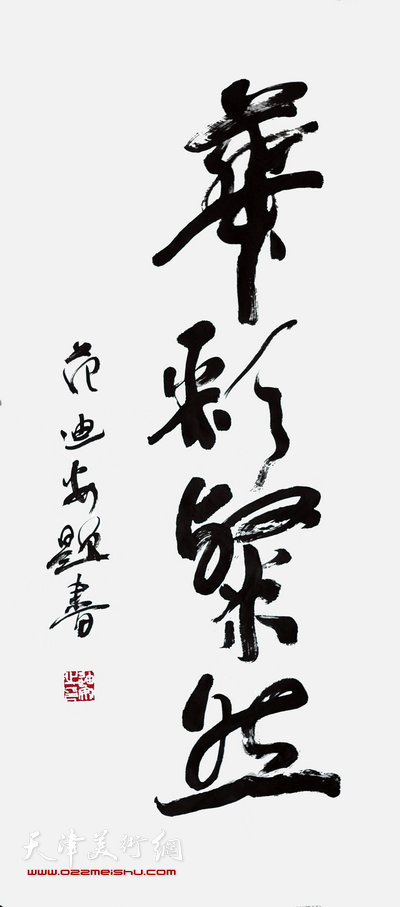 華彩粲然
范迪安題書
天津美術網
www.022meishu.com